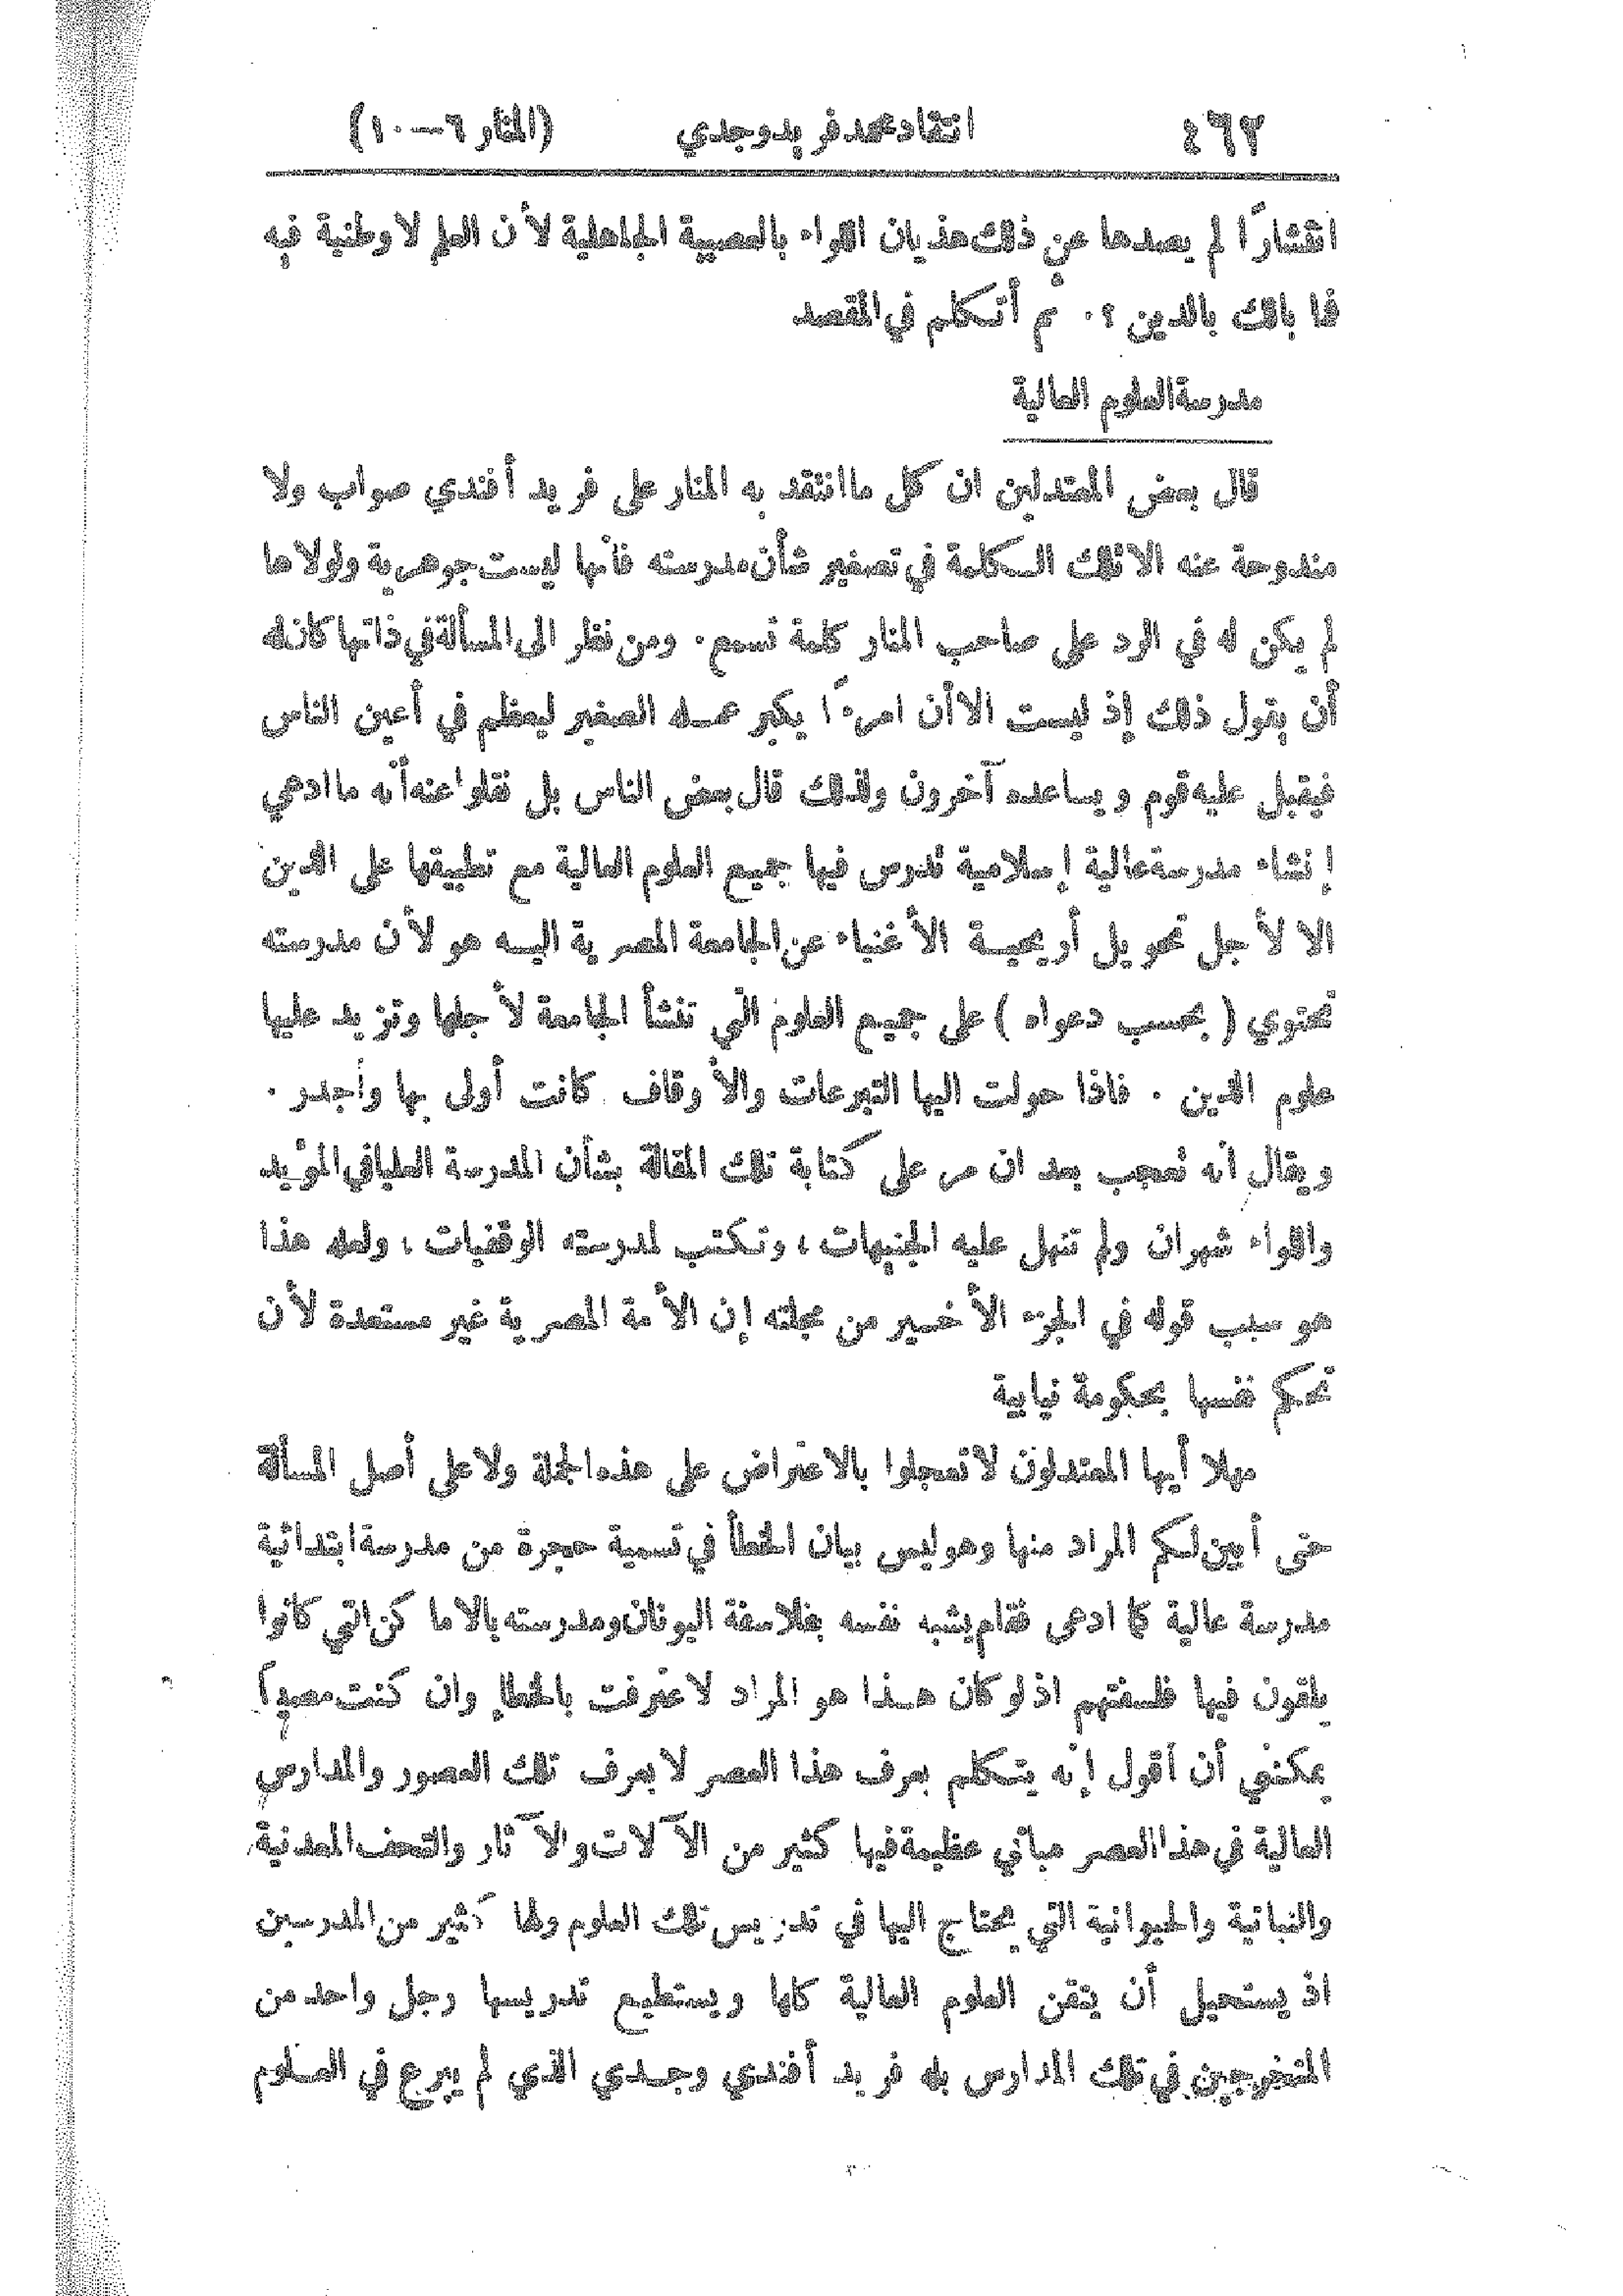 ٤٦٢ انتقاد محمد فريد وجدي (المنار ٦—١٠)
انتشارًا لم يصدها عن ذلك هذيان اللواء بالعصبية الجاهلية لأن العلم لا وطنية فيه
فما بالك بالدين ؟ . ثم أتكلم في المقصد
مدرسة العلوم العالية
قال بعض المعتدلين ان كل ما انتقد به المنار على فريد أفندي صواب ولا
مندوحة عنه الا تلك الكلمة في تصغير شأن مدرسته فانها ليست جوهرية ولولاها
لم يكن له في الرد على صاحب المنار كلمة تسمع . ومن نظر الى المسألة في ذاتها كان له
أن يقول ذلك إذ ليست الا أن امرءًا يكبر عمله الصغير ليعظم في أعين الناس
فيقبل عليه قوم ويساعده آخرون ولذلك قال بعض الناس بل نقلوا عنه أنه ما ادعي
إنشاء مدرسة عالية إسلامية تدرس فيها جميع العلوم العالية مع تطبيقها على الدين
الا لأجل تحويل أريحية الأغنياء عن الجامعة المصرية اليه هو لأن مدرسته
تحتوي ( بحسب دعواه ) على جميع العلوم التي تنشأ الجامعة لأجلها وتزيد عليها
علوم الدين . فاذا حولت اليها التبرعات والأوقاف كانت أولى بها وأجدر .
ويقال انه تعجب بعد ان مر على كتابة تلك المقالة بشأن المدرسة العليا في المؤيد
واللواء شهران ولم تنهل عليه الجنيهات ، وتكتب لمدرسته الوقفيات ، ولعله هذا
هو سبب قوله في الجزء الأخير من مجلته إن الأمة المصرية غير مستعدة لأن
تحكم نفسها بحكومة نيابية
مهلا أيها المعتدلون لا تعجلوا بالاعتراض على هذه الجملة ولا على أصل المسألة
حتى أبين لكم المراد منها وهو ليس بيان الخطأ في تسمية حجرة من مدرسة ابتدائية
مدرسة عالية كما ادعى فقام يشبه نفسه بفلاسفة اليونان ومدرسته بالاماكن التي كانوا
يلقون فيها فلسفتهم اذ لو كان هذا هو المراد لاعترفت بالخطإ وان كنت مصيبًا
يمكنني أن أقول إنه يتكلم بعرف هذا العصر لا بعرف تلك العصور والمدارس
العالية في هذا العصر مباني عظيمة فيها كثير من الآلات والآثار والتحف المعدنية
والنباتية والحيوانية التي يحتاج اليها في تدريس تلك العلوم ولها كثير من المدرسين
اذ يستحيل أن يتقن العلوم العالية كلها ويستطيع تدريسها رجل واحد من
المتخرجين في تلك المدارس بله فريد أفندي وجدي الذي لم يبرع في العلوم